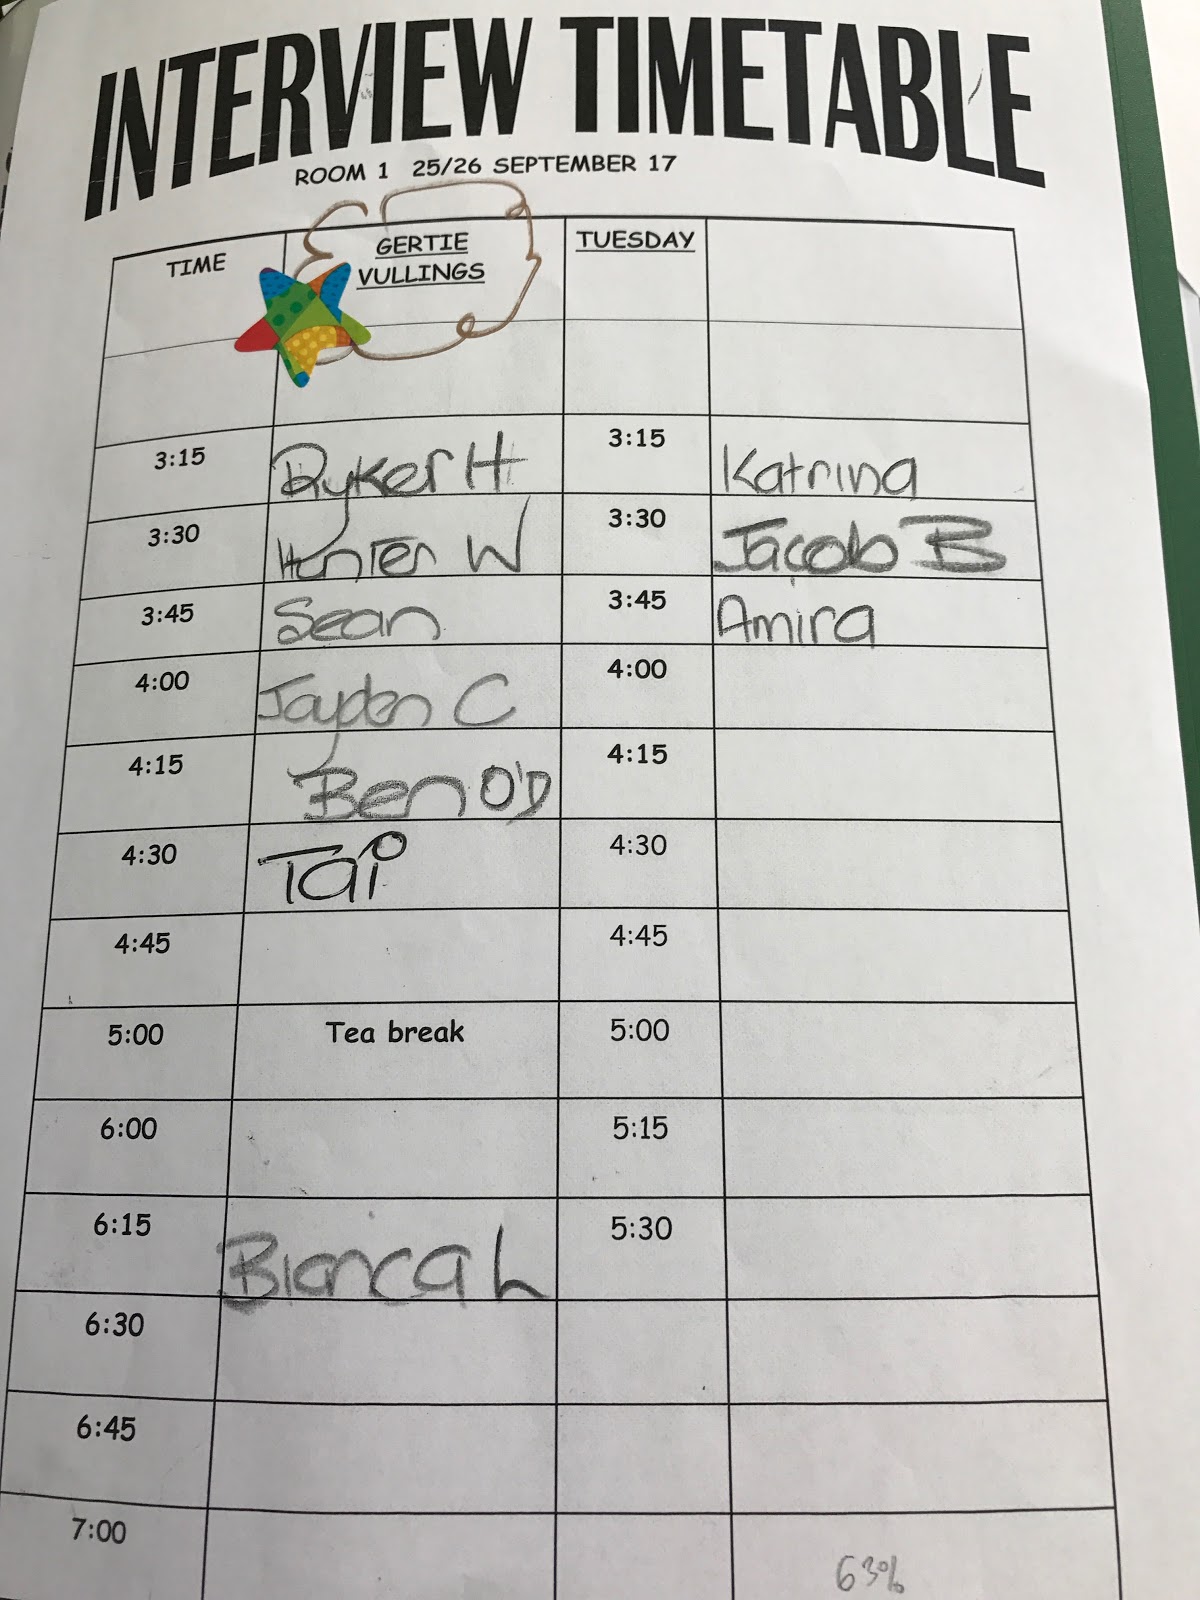 INTERVIEW TIMETABLE
ROOM 1 25/26 SEPTEMBER 17
TIME GERTIE VULLINGS TUESDAY
3:15 Ryker H 3:15 Katrina
3:30 Hunter W 3:30 Jacob B
3:45 Sean 3:45 Amira
4:00 Jayden C 4:00
4:15 Ben O'D 4:15
4:30 Tai 4:30
4:45 4:45
5:00 Tea break 5:00
6:00 5:15
6:15 Bianca L 5:30
6:30
6:45
7:00
63%